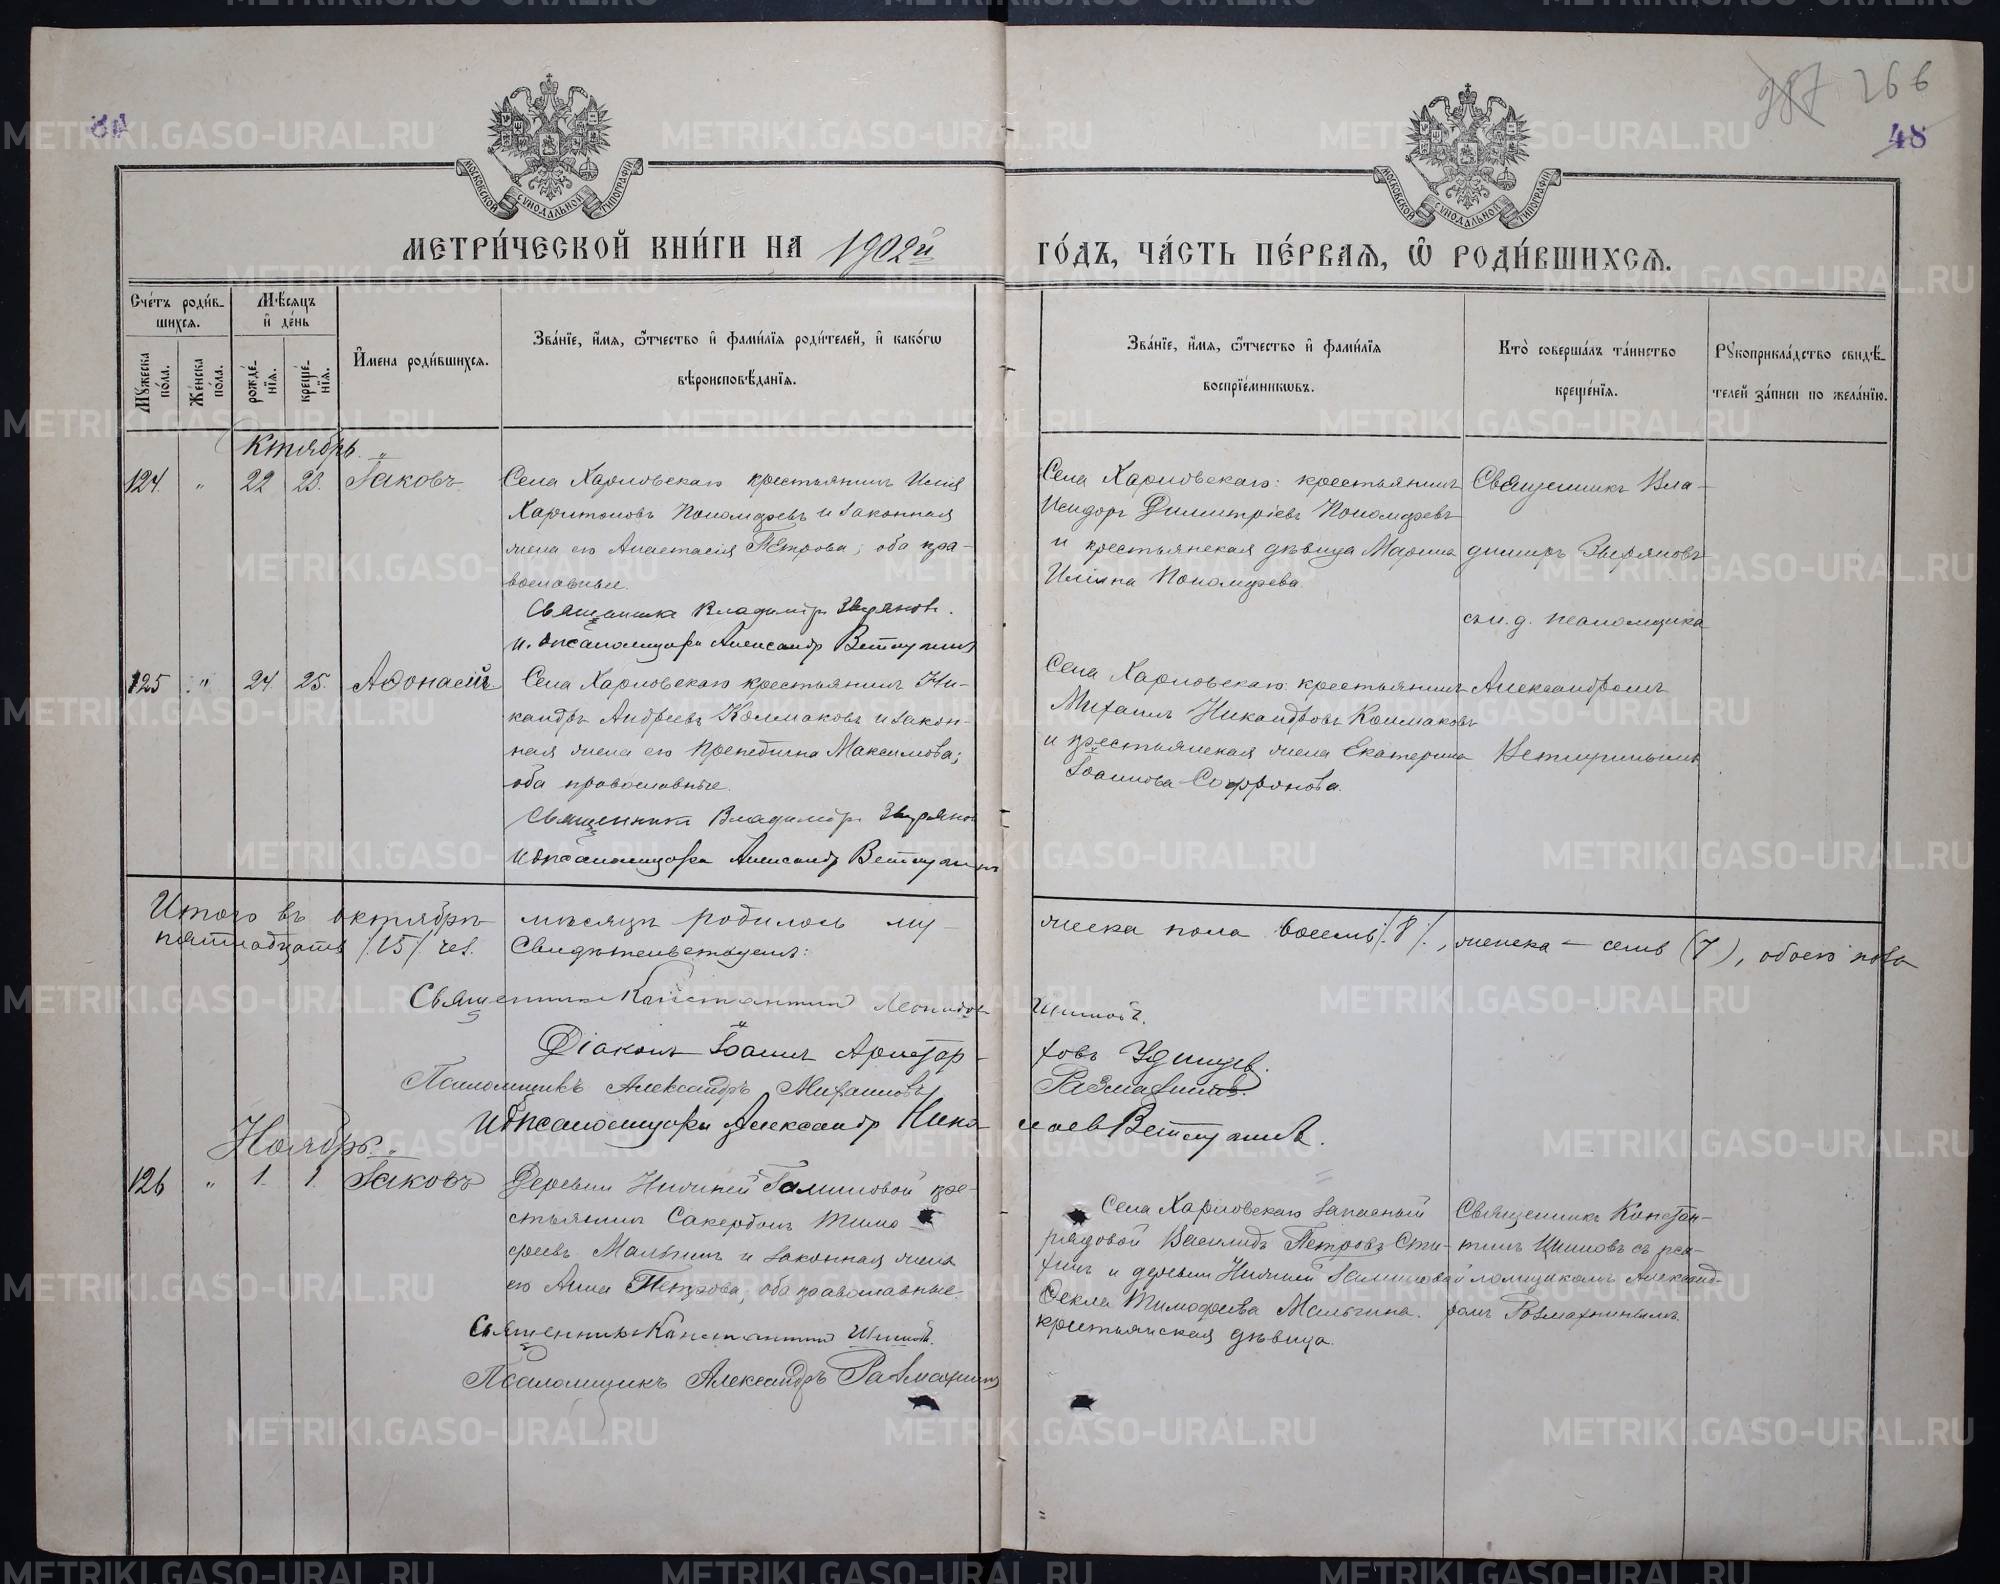 987 266
48
МОСКОВСКОЙ СѴНОДАЛЬНОЙ ТИПОГРАФІИ
МОСКОВСКОЙ СѴНОДАЛЬНОЙ ТИПОГРАФІИ
МЕТРИ́ЧЕСКОЙ КНИ́ГИ НА 1902й
ГО́ДЪ, ЧА́СТЬ ПЕ́РВАѦ, Ѡ РОДИ́ВШИХСѦ.
Сче́тъ роди́в-
шихсѧ.
Мꙋжеска по́ла.
Же́нска по́ла.
Мѣ́сѧцъ
и҆ де́нь
рожде́-
нїѧ.
креще́-
нїѧ.
И҆мена роди́вшихсѧ.
Зва́нїе, и҆́мѧ, ѻ҆́тчество и҆ фами́лїѧ роди́телей, и҆ како́гѡ
вѣроисповѣ́данїѧ.
Зва́нїе, и҆́мѧ, ѻ҆́тчество и҆ фами́лїѧ
воспрїе́мникѡвъ.
Кто̀ соверша́лъ та́инство
креще́нїѧ.
Рꙋкоприкла́дство свидѣ́-
телей за́писи по жела́нїю.
Октябрь.
124. " 22 23. Іаковъ
Села Харловскаго крестьянинъ Илія
Харитоновъ Пономаревъ и законная
жена его Анастасія Петрова; оба пра-
вославные.
Священникъ Владиміръ Звѣревъ.
И. д. псаломщика Александръ Ветлугинъ
Села Харловскаго: крестьянинъ
Исидоръ Димитріевъ Пономаревъ
и крестьянская дѣвица Марина
Иліина Пономарева.
Священникъ Вла-
димиръ
съ и. д. псаломщика
Александромъ
Ветлугинымъ
125 " 24. 25. Аѳонасій
Села Харловскаго крестьянинъ Ни-
кандръ Андреевъ Колмаковъ и закон-
ная жена его Препедигна Максимова;
оба православные.
Священникъ Владиміръ
И д псаломщика Александръ Ветлугинъ
Села Харловскаго: крестьянинъ
Михаилъ Никандровъ Колмаковъ
и крестьянская жена Екатерина
Іоаннова Софронова.
Итого въ октябрѣ мѣсяцѣ родилось му-
жеска пола восемь /8/, женска – семь (7), обоего пола
пятнадцать /15/ чел. Свидѣтельствуемъ:
Священникъ Константинъ Леонидов
Шишовъ.
Діаконъ Іоаннъ Аристар-
ховъ Удинцев.
Псаломщикъ Александръ Михаиловъ
Размахнинъ.
И д псаломщика Александръ Нико-
лаев Ветлугинъ.
Ноябрь.
126 " 1. 1. Іаковъ
Деревни Нижней Галишовой кре-
стьянинъ Сакердонъ Тимо-
феевъ Мальгинъ и законная жена
его Анна Петрова; оба православные.
Священникъ Константинъ Шишовъ.
Псаломщикъ Александръ Размахнинъ
Села Харловскаго запасный
рядовой Василидъ Петровъ Сти-
хинъ и деревни Нижней Галишовой
Ѳекла Тимофеева Мальгина.
крестьянская дѣвица.
Священникъ Констан-
тинъ Шишовъ съ пса-
ломщикомъ Александ-
ромъ Размахнинымъ.
METRIKI.GASO-URAL.RU